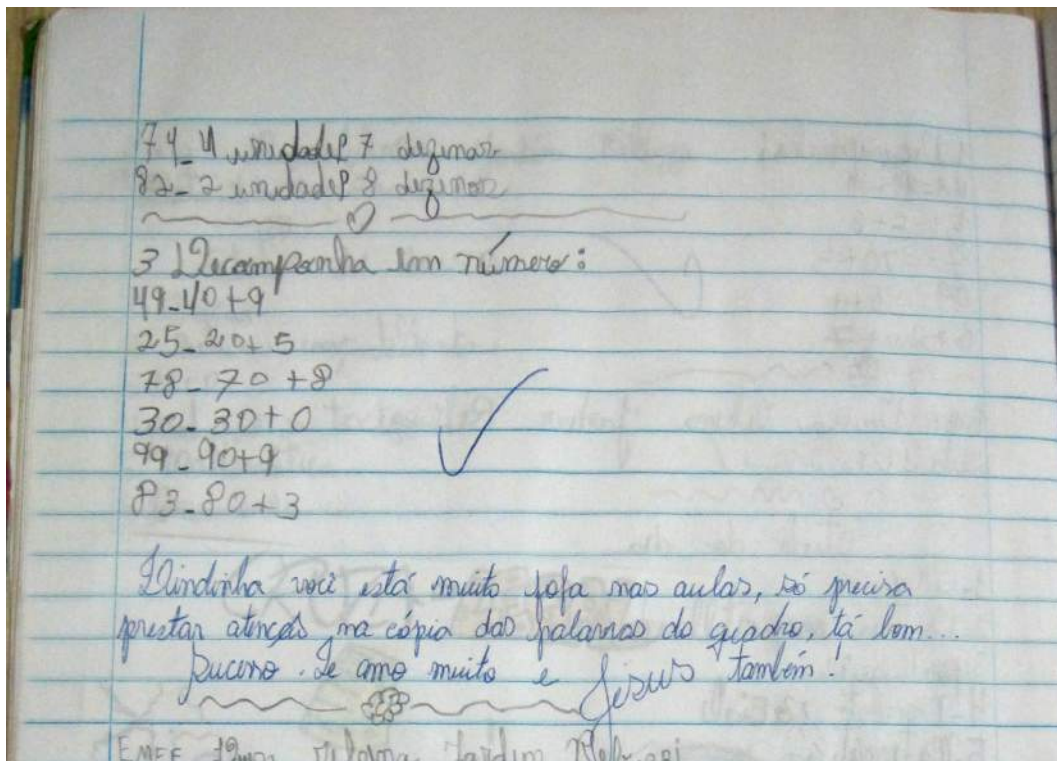 74_4 unidades 7 dezenas
82_2 unidades 8 dezenas
3 Decomponha em número:
49_40+9
25_20+5
78_70+8
30_30+0
99_90+9
83_80+3
você está muito fofa nas aulas, só precisa
prestar atenção na cópia das palavras do quadro, tá bom...
Sucesso. Te amo muito e Jesus também!
EMEF Jardim